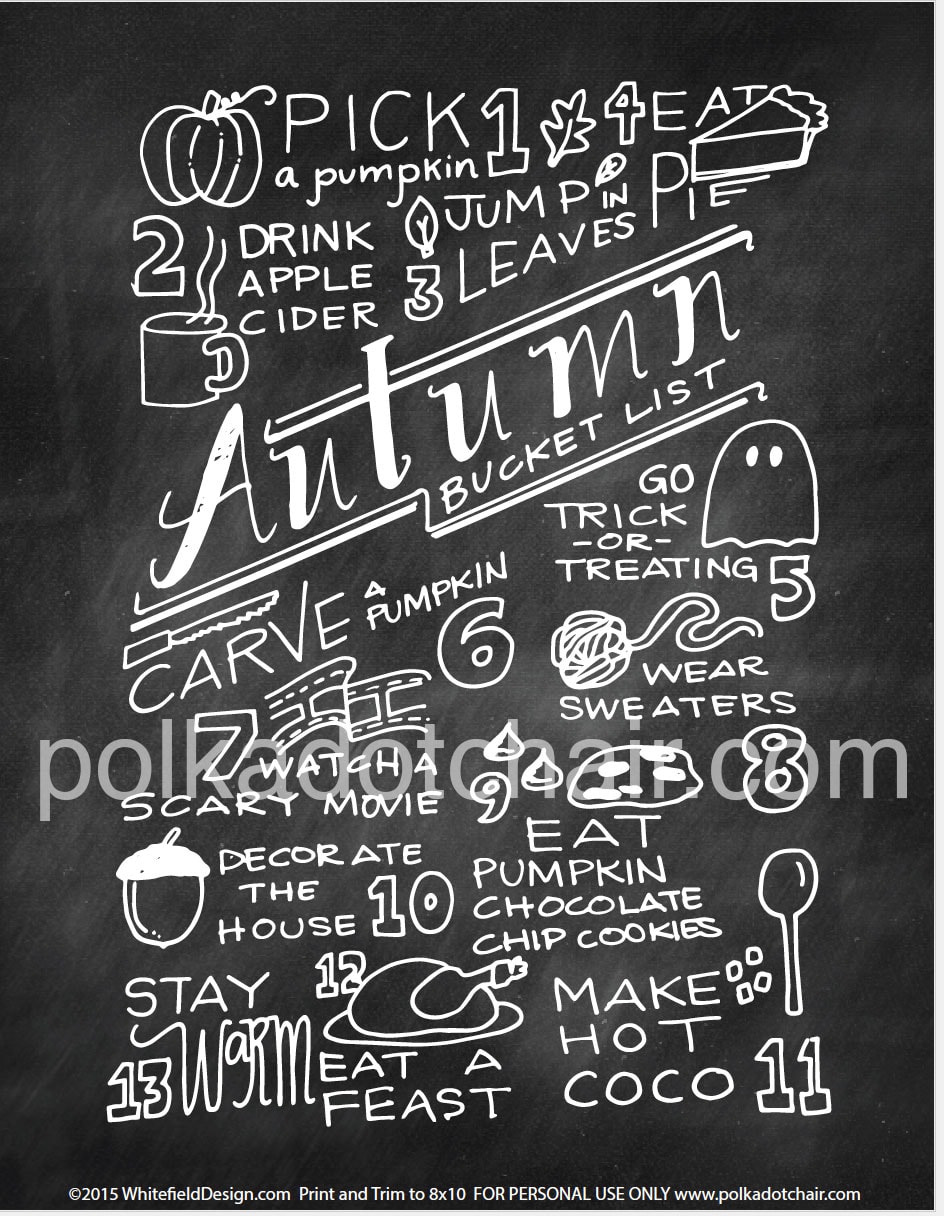 PICK 1
a pumpkin
2 DRINK
APPLE
CIDER
JUMP IN
3 LEAVES
4 EAT
PIE
Autumn
BUCKET LIST
GO
TRICK
-OR-
TREATING 5
CARVE A
PUMPKIN
6
7
WATCH A
SCARY MOVIE
WEAR
SWEATERS
8
polkadotchair.com
9
EAT
PUMPKIN
CHOCOLATE
CHIP COOKIES
DECORATE
THE
HOUSE 10
MAKE
HOT
COCO 11
12
EAT A
FEAST
STAY
WARM
13
©2015 WhitefieldDesign.com Print and Trim to 8x10 FOR PERSONAL USE ONLY www.polkadotchair.com